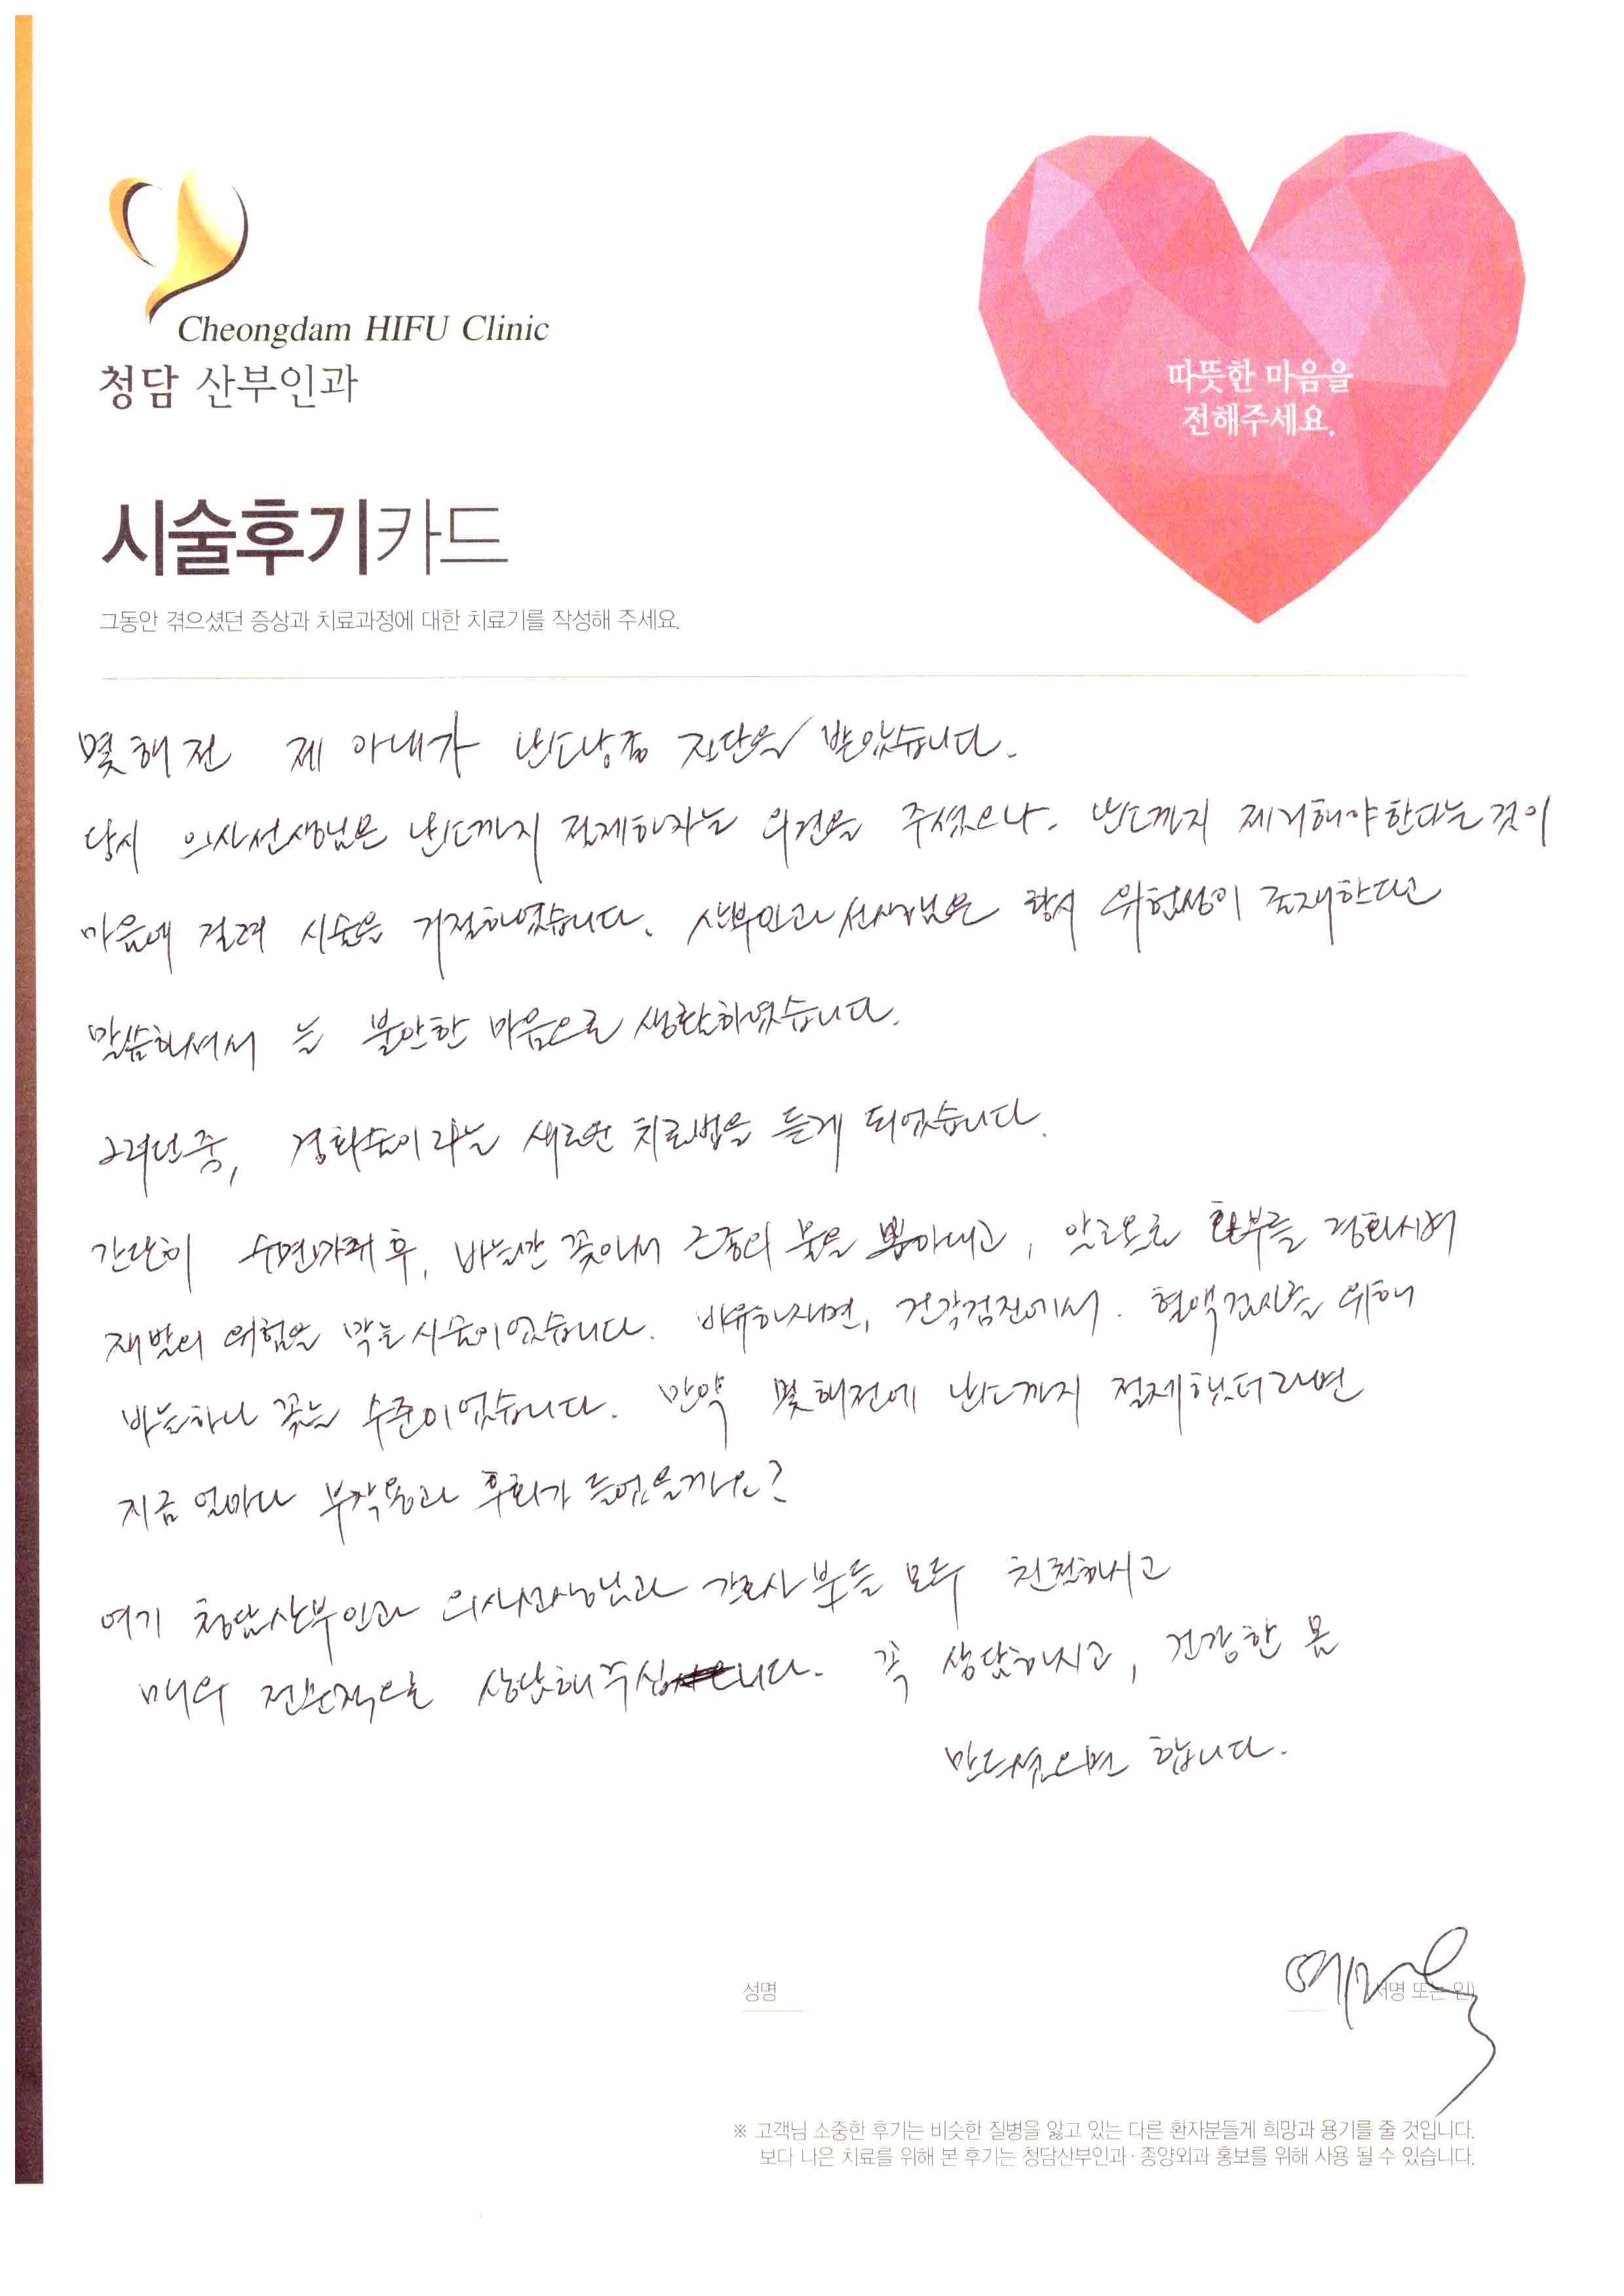 Cheongdam HIFU Clinic
청담 산부인과
따뜻한 마음을
전해주세요.
시술후기카드
그동안 겪으셨던 증상과 치료과정에 대한 치료기를 작성해 주세요.
몇해전 제 아내가 난소낭종 진단을 받았습니다.
당시 의사선생님은 난소까지 절제하자는 의견을 주셨으나. 난소까지 제거해야한다는 것이
마음에 걸려 시술을 거절하였습니다. 산부인과 선생님은 항시 위험성이 존재한다고
말씀하셔서 늘 불안한 마음으로 생활하였습니다.
그러던중, 경화술이라는 새로운 치료법을 듣게 되었습니다.
간단히 수면마취 후, 바늘만 꽂아서 근종의 물을 뽑아내고, 알코올로 환부를 경화시켜
재발의 위험을 막는 시술이었습니다. 비유하자면, 건강검진에서. 혈액검사를 위해
바늘하나 꽂는 수준이었습니다. 만약 몇해전에 난소까지 절제했더라면
지금 얼마나 부작용과 후회가 들었을까요?
여기 청담산부인과 의사선생님과 간호사 분들 모두 친절하시고
매우 전문적으로 상담해주십니다. 꼭 상담하시고, 건강한 몸
만드셨으면 합니다.
성명 (서명 또는 인)
※ 고객님 소중한 후기는 비슷한 질병을 앓고 있는 다른 환자분들게 희망과 용기를 줄 것입니다.
보다 나은 치료를 위해 본 후기는 청담산부인과·종양외과 홍보를 위해 사용 될 수 있습니다.